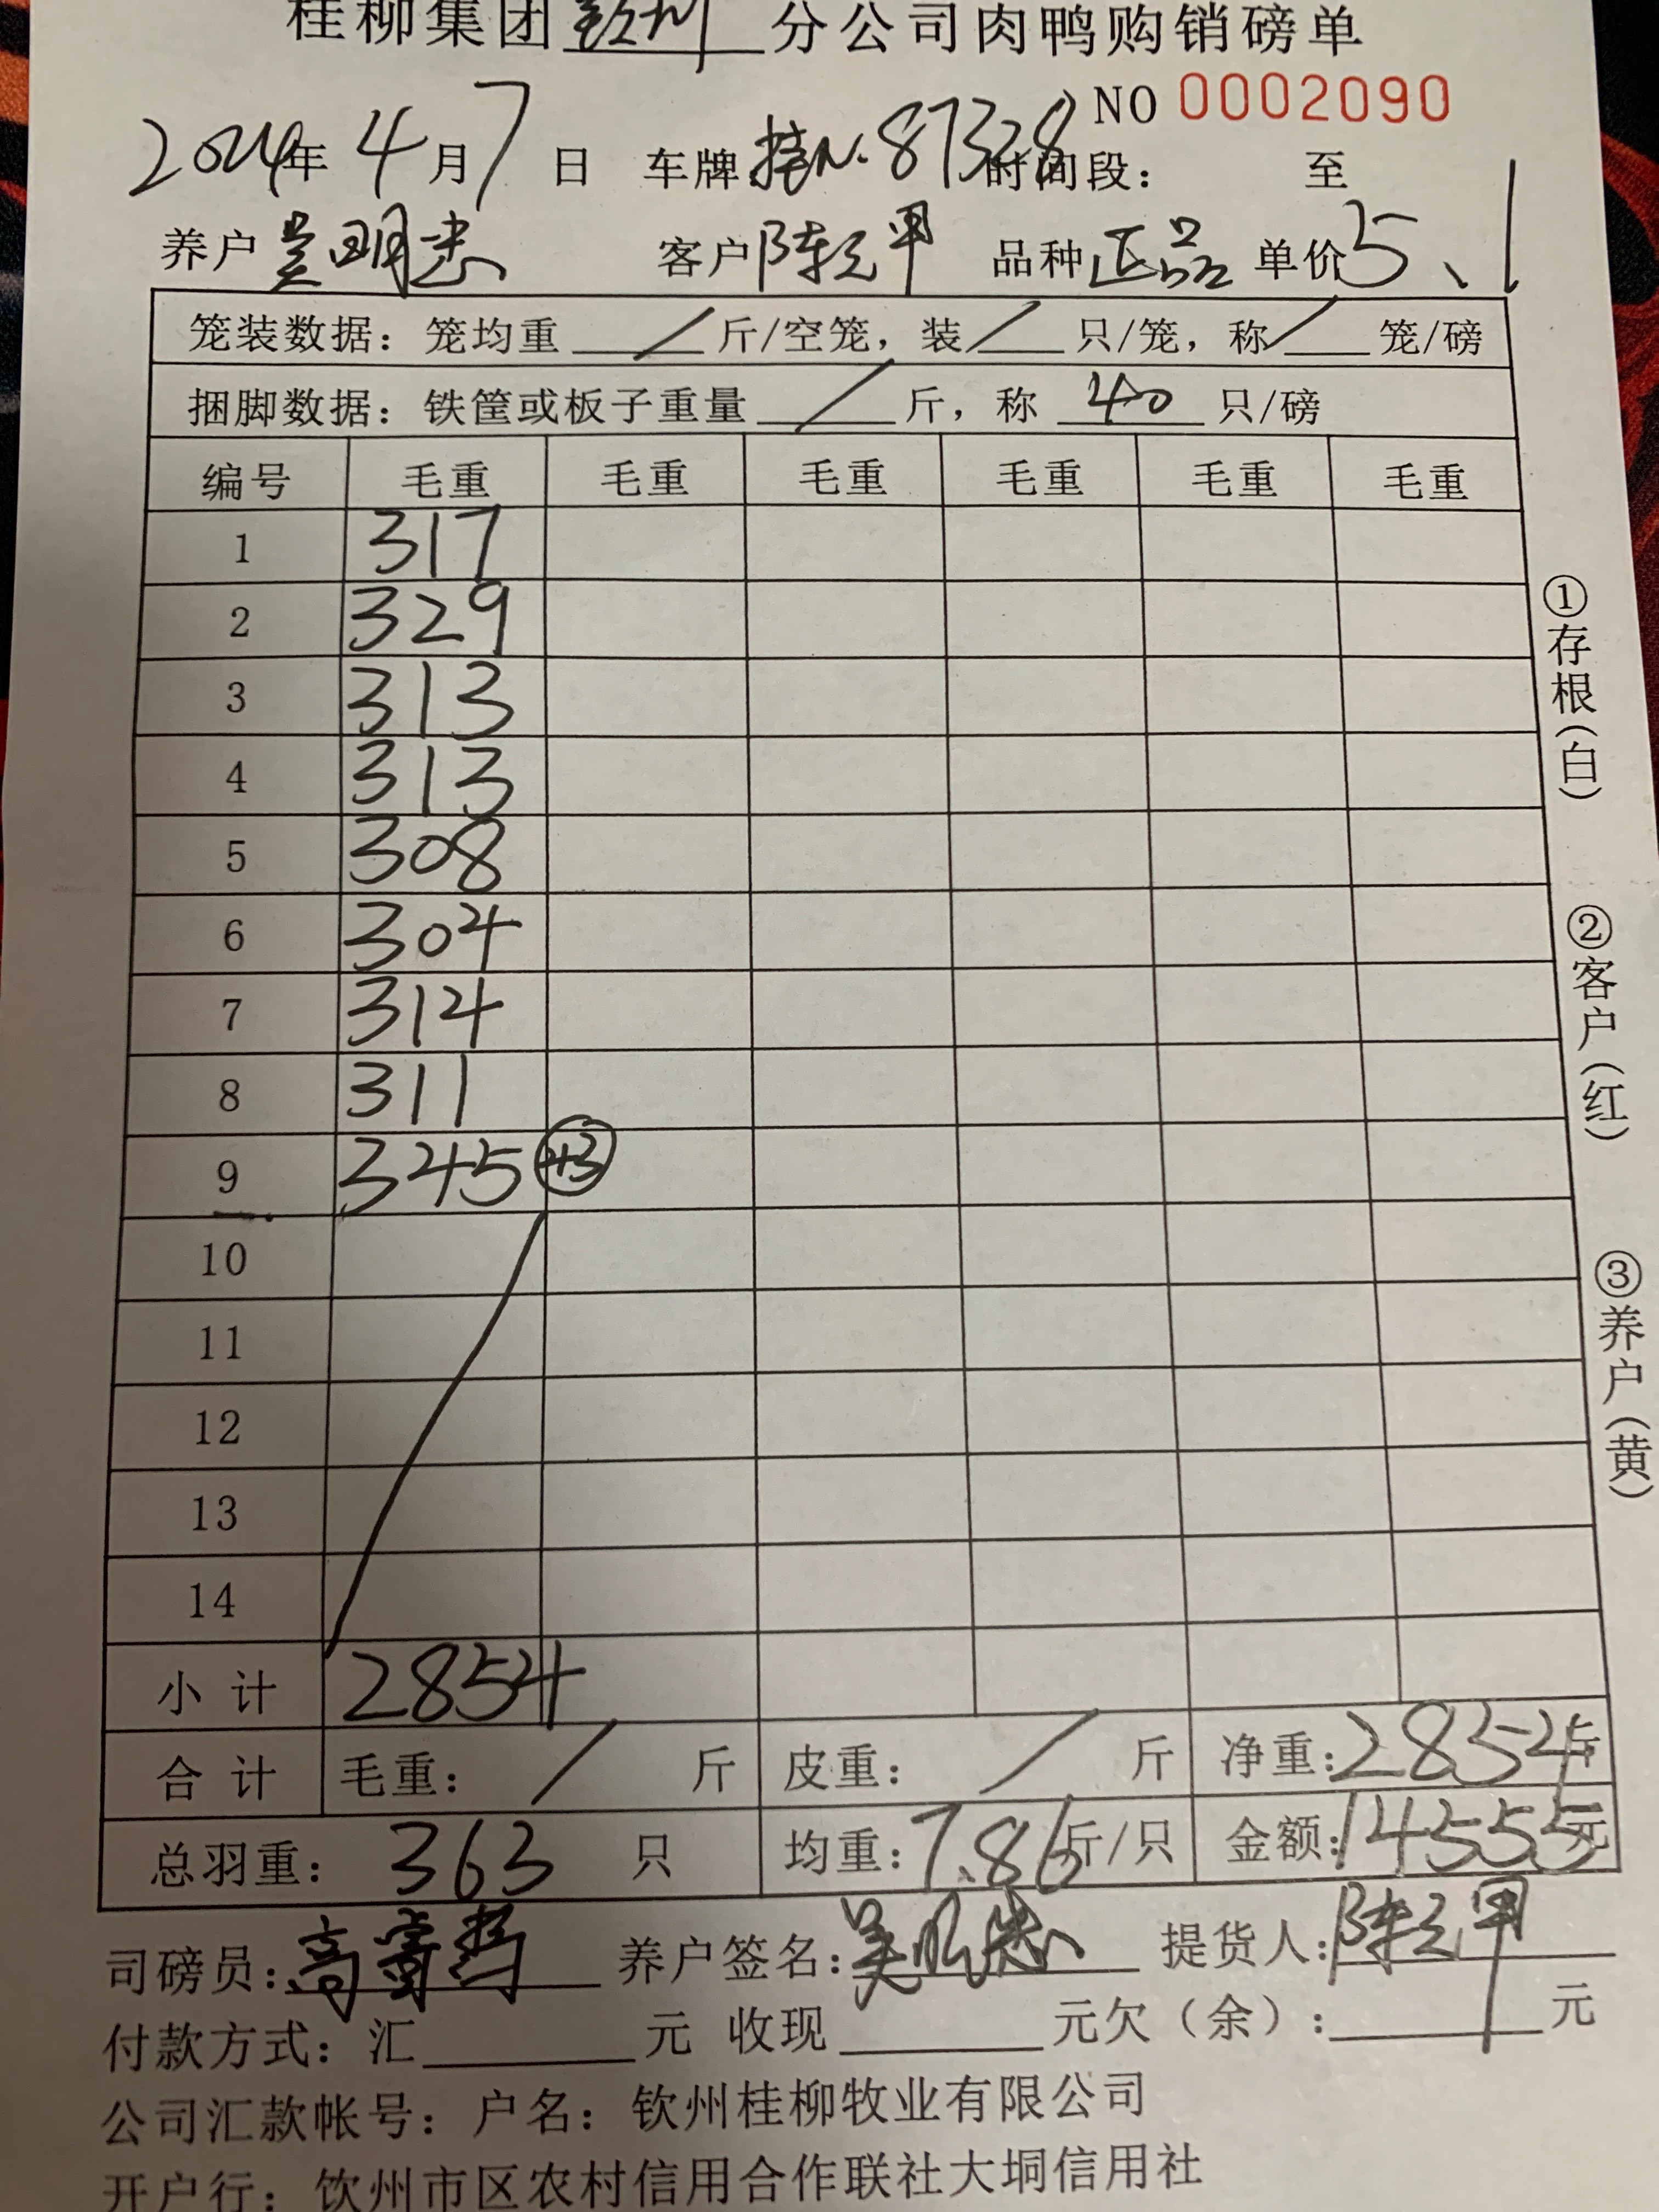 桂柳集团钦州分公司肉鸭购销磅单
NO 0002090
2024年4月7日 车牌:桂N.87328 时间段: 至
养户 吴明忠 客户 陈元甲 品种 正品 单价 5、1
笼装数据:笼均重 / 斤/空笼,装 / 只/笼,称 / 笼/磅
捆脚数据:铁筐或板子重量 / 斤,称 40 只/磅
编号 毛重 毛重 毛重 毛重 毛重 毛重
1 317
2 329
3 313
4 313
5 308
6 304
7 314
8 311
9 345 +3
10
11
12
13
14
小计 2854
合计 毛重: / 斤 皮重: / 斤 净重:2854斤
总羽重: 363 只 均重:7.86斤/只 金额:14555元
司磅员: 养户签名:吴明忠 提货人:陈元甲
付款方式:汇 元 收现 元欠(余): 元
公司汇款帐号:户名:钦州桂柳牧业有限公司
开户行:钦州市区农村信用合作联社大垌信用社
①存根(白)
②客户(红)
③养户(黄)